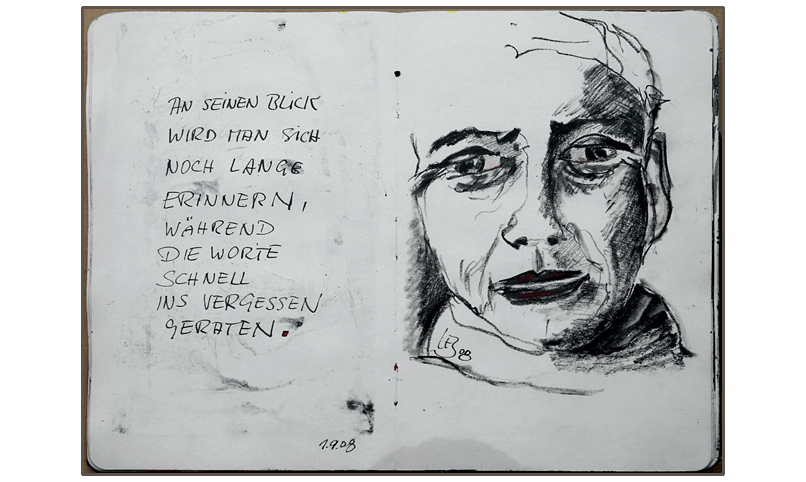 AN SEINEN BLICK
WIRD MAN SICH
NOCH LANGE
ERINNERN,
WÄHREND
DIE WORTE
SCHNELL
INS VERGESSEN
GERATEN.
1.9.08
LEZ 08